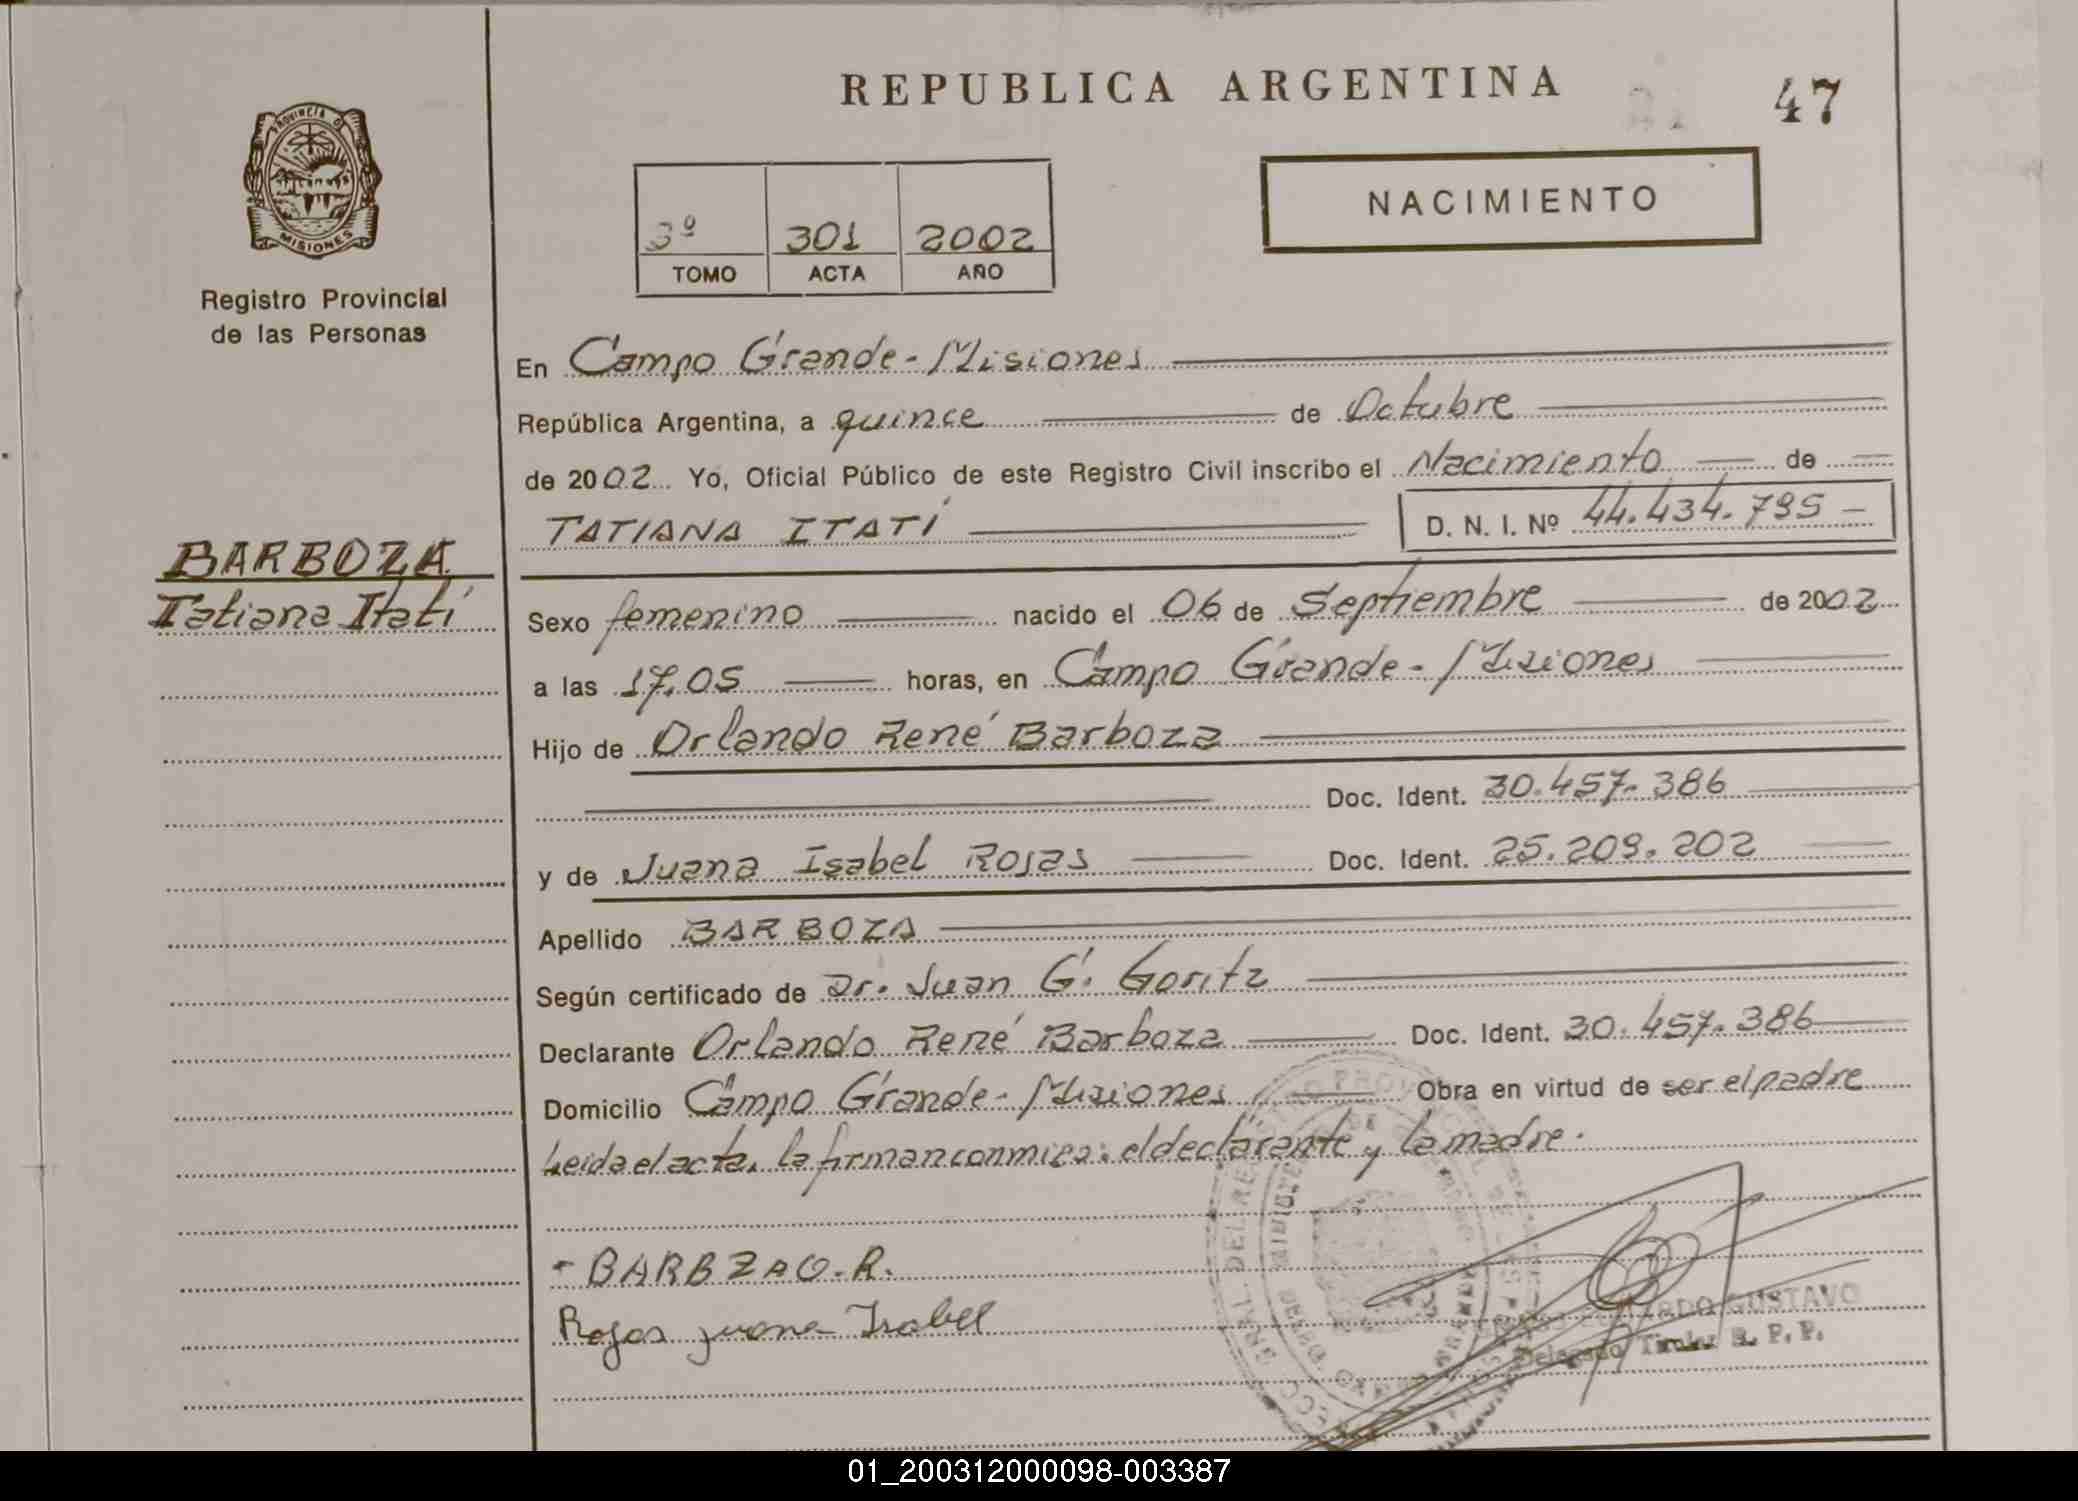 REPUBLICA ARGENTINA
47
PROVINCIA D
MISIONES
Registro Provincial
de las Personas
3º 301 2002
TOMO ACTA AÑO
NACIMIENTO
En Campo Grande - Misiones
República Argentina, a quince de Octubre
de 2002 Yo, Oficial Público de este Registro Civil inscribo el Nacimiento de
TATIANA ITATÍ D. N. I. Nº 44.434.795 -
BARBOZA
Tatiana Itatí
Sexo femenino nacido el 06 de Septiembre de 2002
a las 17,05 horas, en Campo Grande - Misiones
Hijo de Orlando René Barboza
Doc. Ident. 30.457.386
y de Juana Isabel Rojas Doc. Ident. 25.209.202
Apellido BARBOZA
Según certificado de Dr. Juan G. Goritz
Declarante Orlando René Barboza Doc. Ident. 30.457.386
Domicilio Campo Grande - Misiones Obra en virtud de ser el padre
Leida el acta, la firman conmigo: el declarante y la madre.
- BARBZAO.R.
Rojas juana Isabel
GUSTAVO
Delegado Titular R. P. P.
01_200312000098-003387